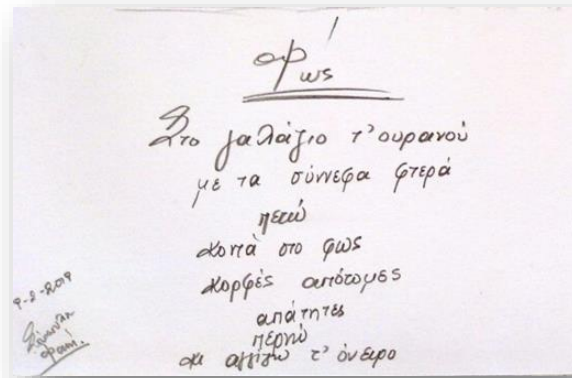 φως
Στο γαλάζιο τ' ουρανού
με τα σύννεφα φτερά
πετώ
κοντά στο φως
κορφές απότομες
απάτητες
περνώ
κι αγγίζω τ' όνειρο
9-2-2019